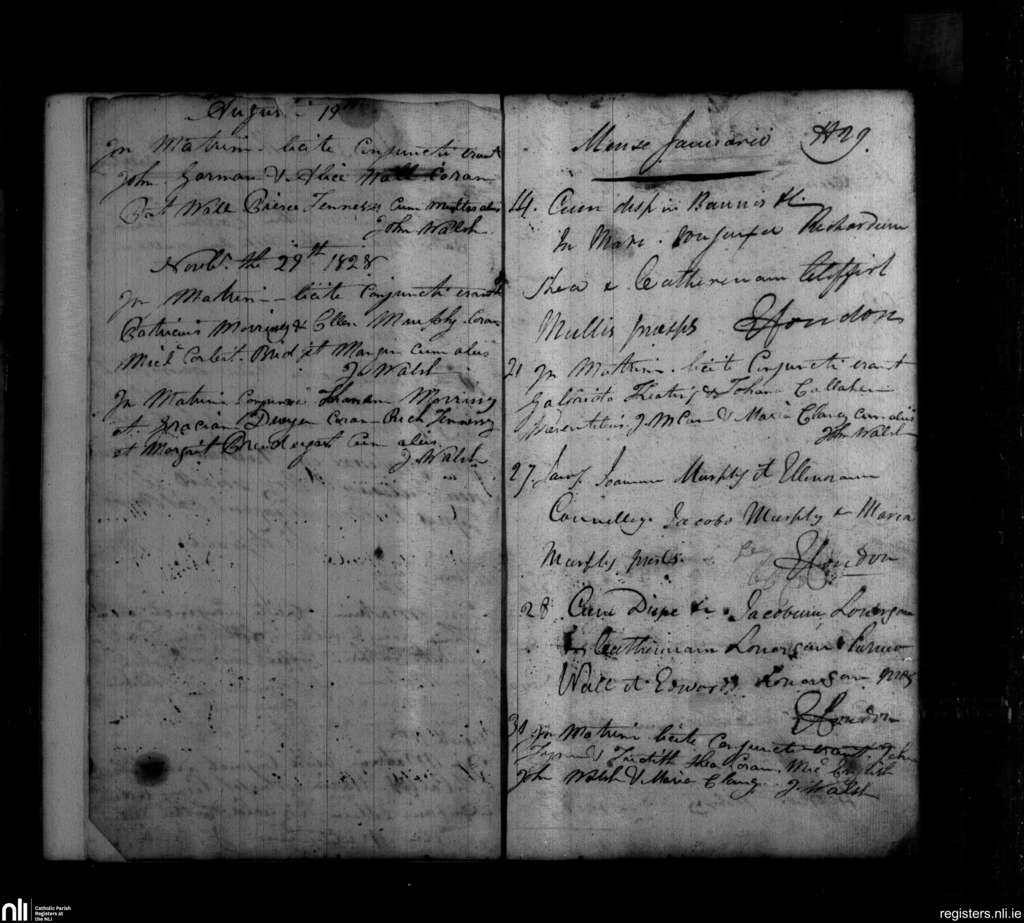 August 19
In Matrim - licite Conjuncti erant
John Gorman & Alice Wall Coram
Pat Wall Pierce Jennesse Cum multis aliis
John Walsh
Novbr. the 29th 1828
In Matrim - licite Conjuncti erant
Patricius Morrisy & Ellen Murphy Coram
Micl Corbet. Bridget Mangin cum aliis
Jn Walsh
In Matrim Conjunxi Morrissy
et Dwyer Coram Rich Jennessy
et Margrit Prendergast Cum aliis
J. Walsh
Mense Januario 1829.
14. Cum disp in Bannis &c
In Mari. conjunxi Richardum
Shea & Catherinam
Multis præsps E Condon
21 In Matrim - licite Conjuncti erant
Keating & Johan Callahan
presentibus. J. McCan & Maria Clancy cum aliis
John Walsh
27. Joannem Murphy et Ellenoram
Connelly. Jacobo Murphy & Maria
Murphy præs. E Condon
28 Cum Dispe &c Jacobum Lonergan
& Catherinam Lonergan
Wall et Edward Lonergan præs
E Condon
31 In Matrim licite Conjuncti erant John
& Judith Shea Coram. Micl English
John Walsh & Maria Clancy. J Walsh
nli
Catholic Parish
Registers at
the NLI
registers.nli.ie